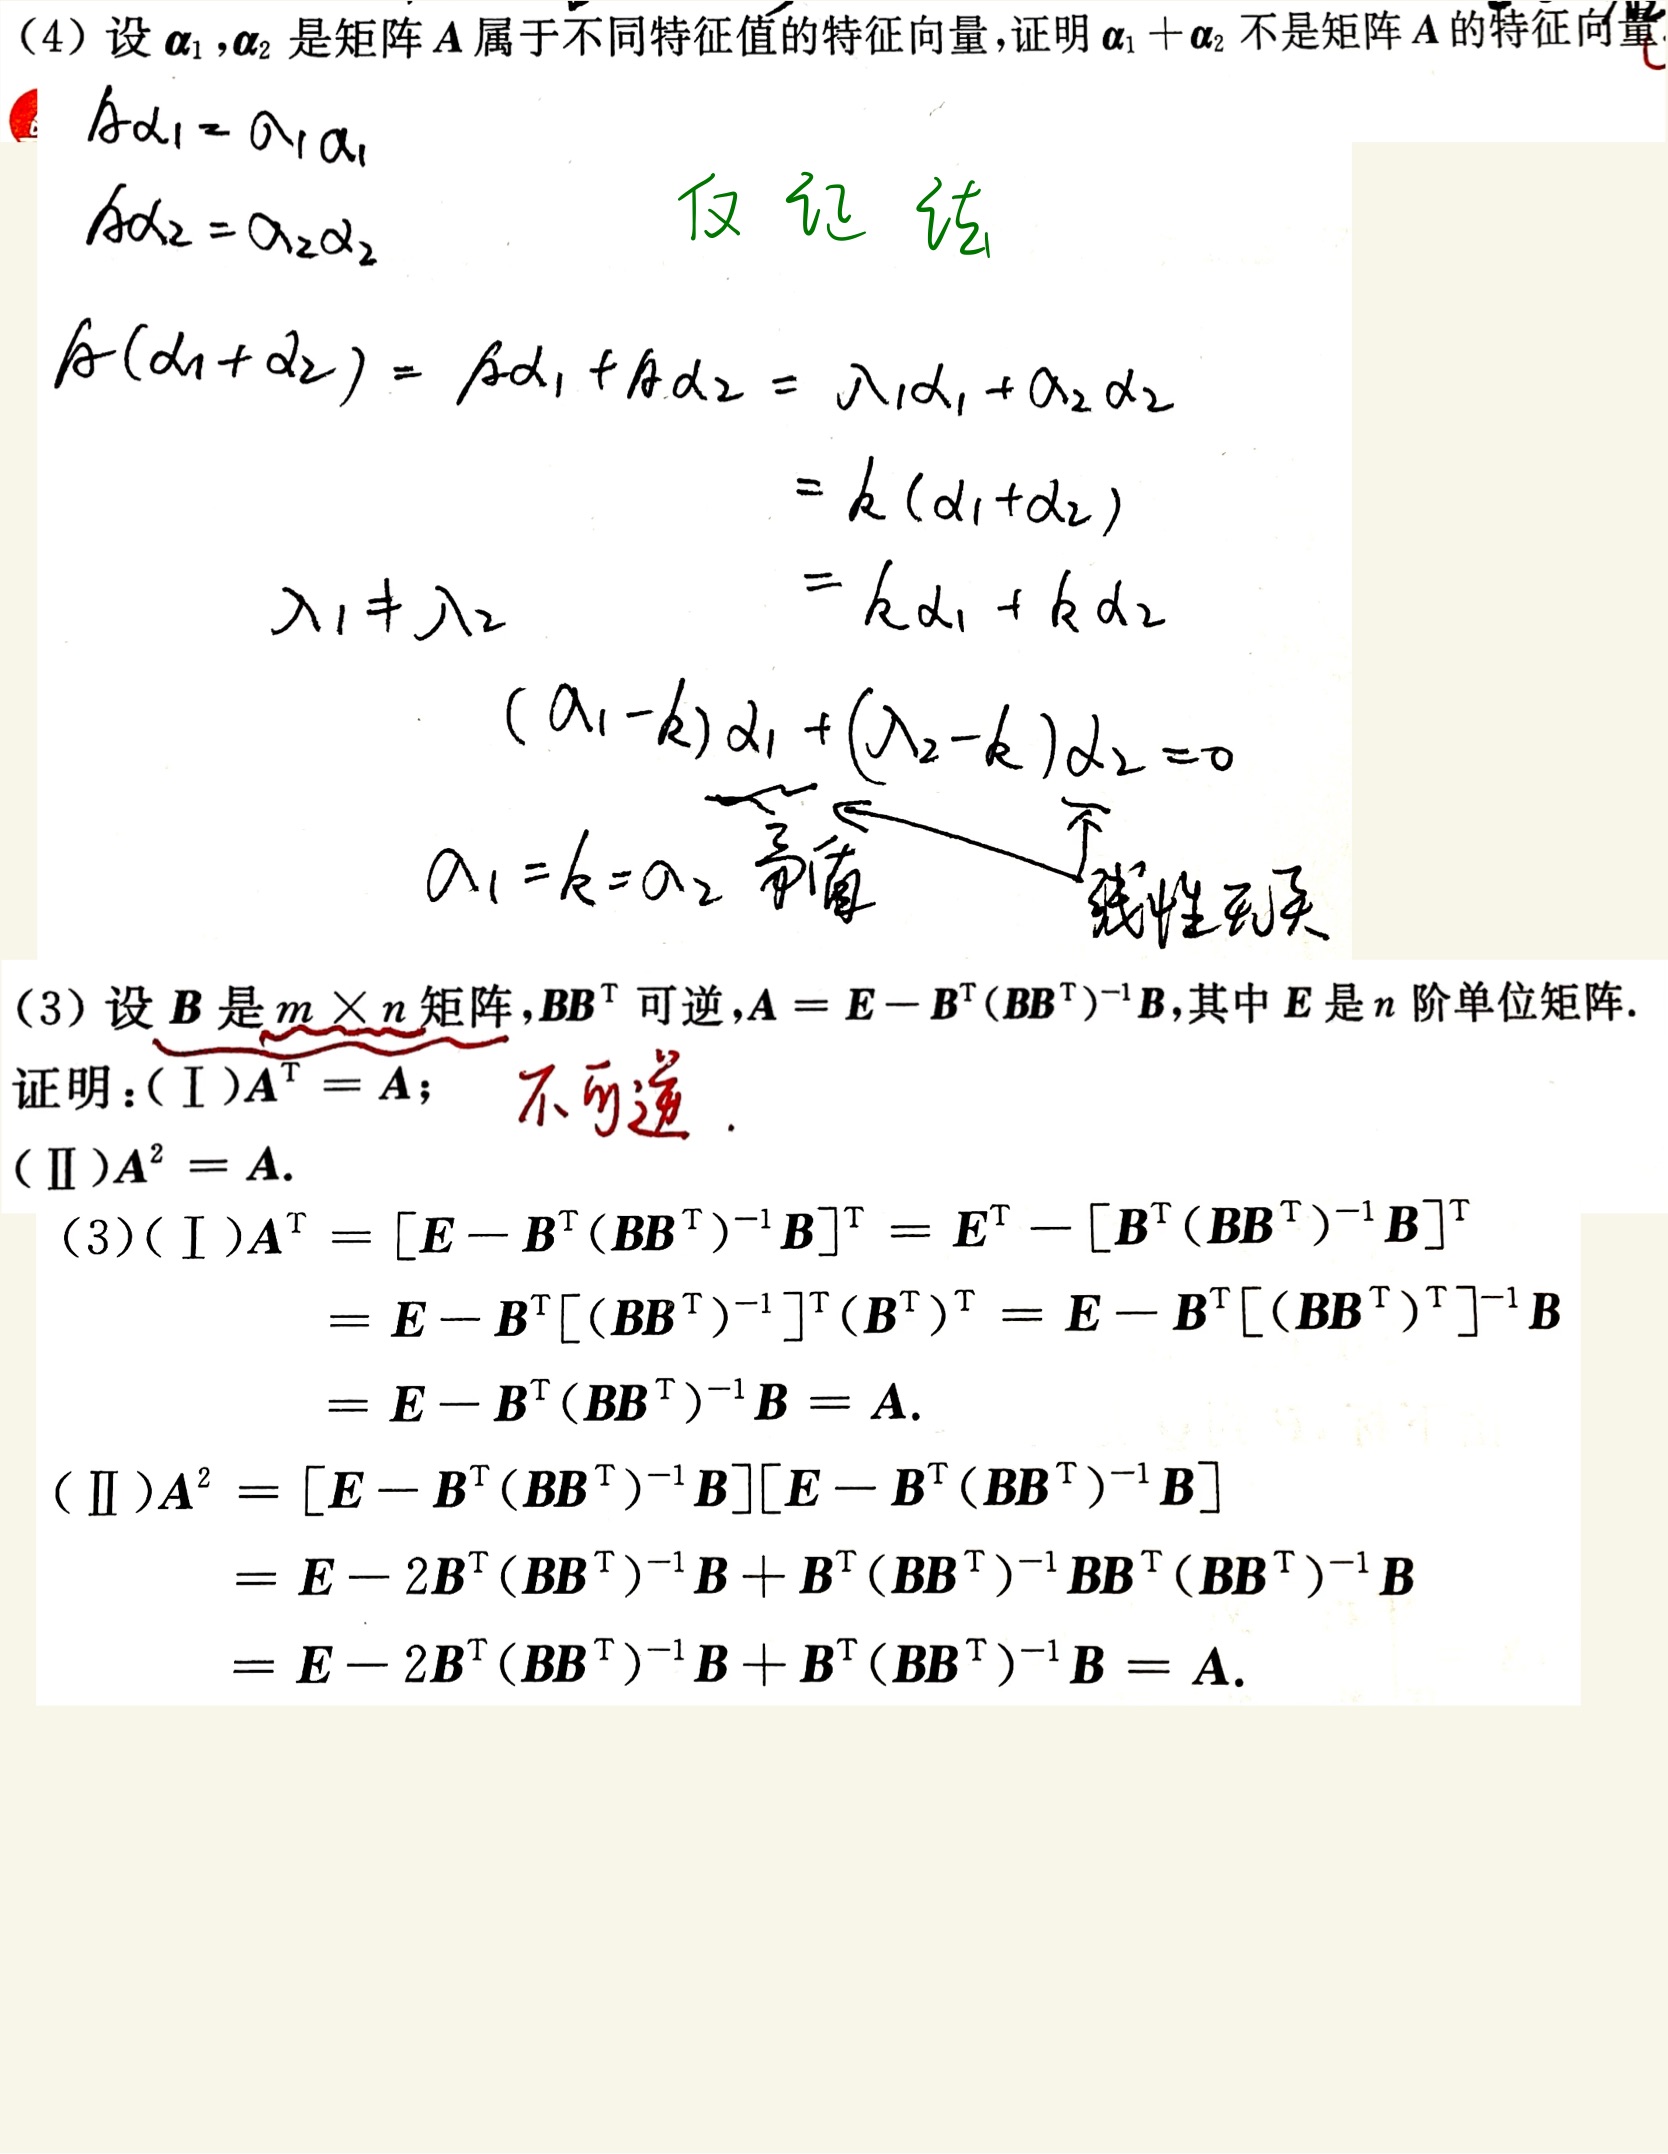 (4) 设 α₁,α₂ 是矩阵 A 属于不同特征值的特征向量,证明 α₁+α₂ 不是矩阵 A 的特征向量
Aα₁=λ₁α₁
Aα₂=λ₂α₂
反证法
A(α₁+α₂) = Aα₁+Aα₂ = λ₁α₁+λ₂α₂
= k(α₁+α₂)
= kα₁+kα₂
λ₁≠λ₂
(λ₁-k)α₁+(λ₂-k)α₂=0
λ₁=k=λ₂ 矛盾
线性无关
(3) 设 B 是 m×n 矩阵,BBᵀ 可逆,A = E-Bᵀ(BBᵀ)⁻¹B,其中 E 是 n 阶单位矩阵.
证明:(Ⅰ)Aᵀ = A; 不可逆.
(Ⅱ)A² = A.
(3)(Ⅰ)Aᵀ = [E-Bᵀ(BBᵀ)⁻¹B]ᵀ = Eᵀ-[Bᵀ(BBᵀ)⁻¹B]ᵀ
= E-Bᵀ[(BBᵀ)⁻¹]ᵀ(Bᵀ)ᵀ = E-Bᵀ[(BBᵀ)ᵀ]⁻¹B
= E-Bᵀ(BBᵀ)⁻¹B = A.
(Ⅱ)A² = [E-Bᵀ(BBᵀ)⁻¹B][E-Bᵀ(BBᵀ)⁻¹B]
= E-2Bᵀ(BBᵀ)⁻¹B+Bᵀ(BBᵀ)⁻¹BBᵀ(BBᵀ)⁻¹B
= E-2Bᵀ(BBᵀ)⁻¹B+Bᵀ(BBᵀ)⁻¹B = A.